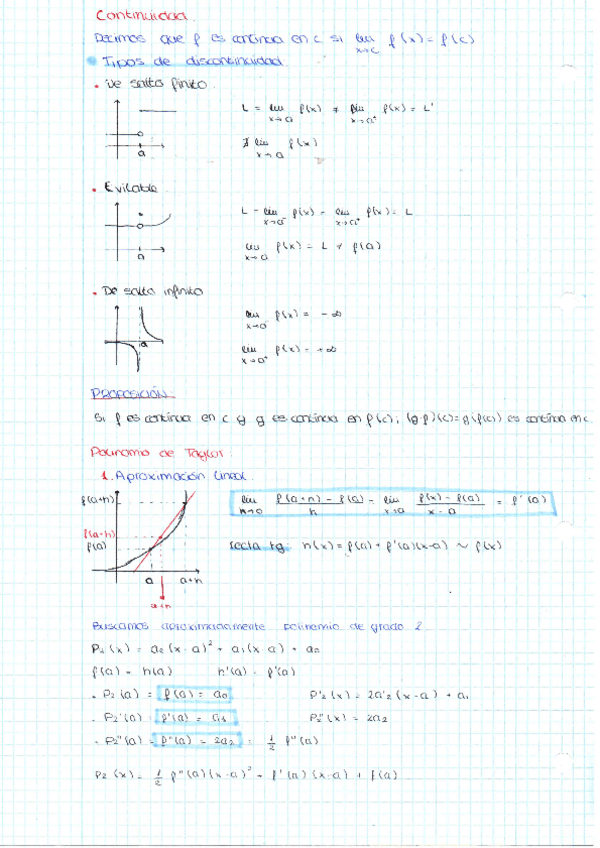 Continuidad.
Decimos que f es continua en c si lim x→c f(x) = f(c)
Tipos de discontinuidad
• De salto finito
L = lim x→a⁻ f(x) ≠ lim x→a⁺ f(x) = L'
∄ lim x→a f(x)
a
• Evitable
L = lim x→a⁻ f(x) = lim x→a⁺ f(x) = L
lim x→a f(x) = L ≠ f(a)
a
• De salto infinito
lim x→a⁻ f(x) = -∞
a
lim x→a⁺ f(x) = +∞
PROPOSICIÓN:
Si f es continua en c y g es continua en f(c), (g∘f)(c)=g(f(c)) es continua en c.
Polinomio de Taylor:
1. Aproximación lineal.
f(a+h)
lim h→0 f(a+h) - f(a) / h = lim x→a f(x) - f(a) / x - a = f'(a)
f(a+h)
f(a)
recta tg: h(x) = f(a) + f'(a)(x-a) ~ f(x)
a a+h
a+h
Buscamos aproximadamente polinomio de grado 2
P₂(x) = a₂(x-a)² + a₁(x-a) + a₀
f(a) = h(a) h'(a) = f'(a)
• P₂(a) = f(a) = a₀ P'₂(x) = 2a₂(x-a) + a₁
• P₂'(a) = f'(a) = a₁ P₂''(x) = 2a₂
• P₂''(a) = f''(a) = 2a₂ = 1/2 f''(a)
P₂(x) = 1/2 f''(a)(x-a)² + f'(a)(x-a) + f(a)